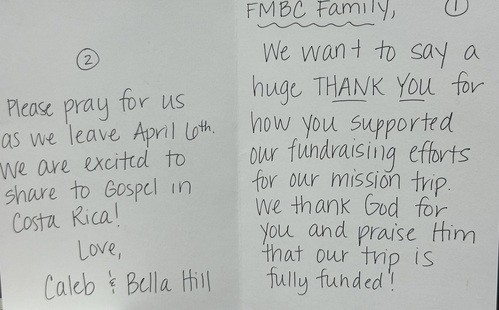 FMBC Family,
1
We want to say a
huge THANK YOU for
how you supported
our fundraising efforts
for our mission trip.
We thank God for
you and praise Him
that our trip is
fully funded!
2
Please pray for us
as we leave April 6th.
We are excited to
share to Gospel in
Costa Rica!
Love,
Caleb & Bella Hill